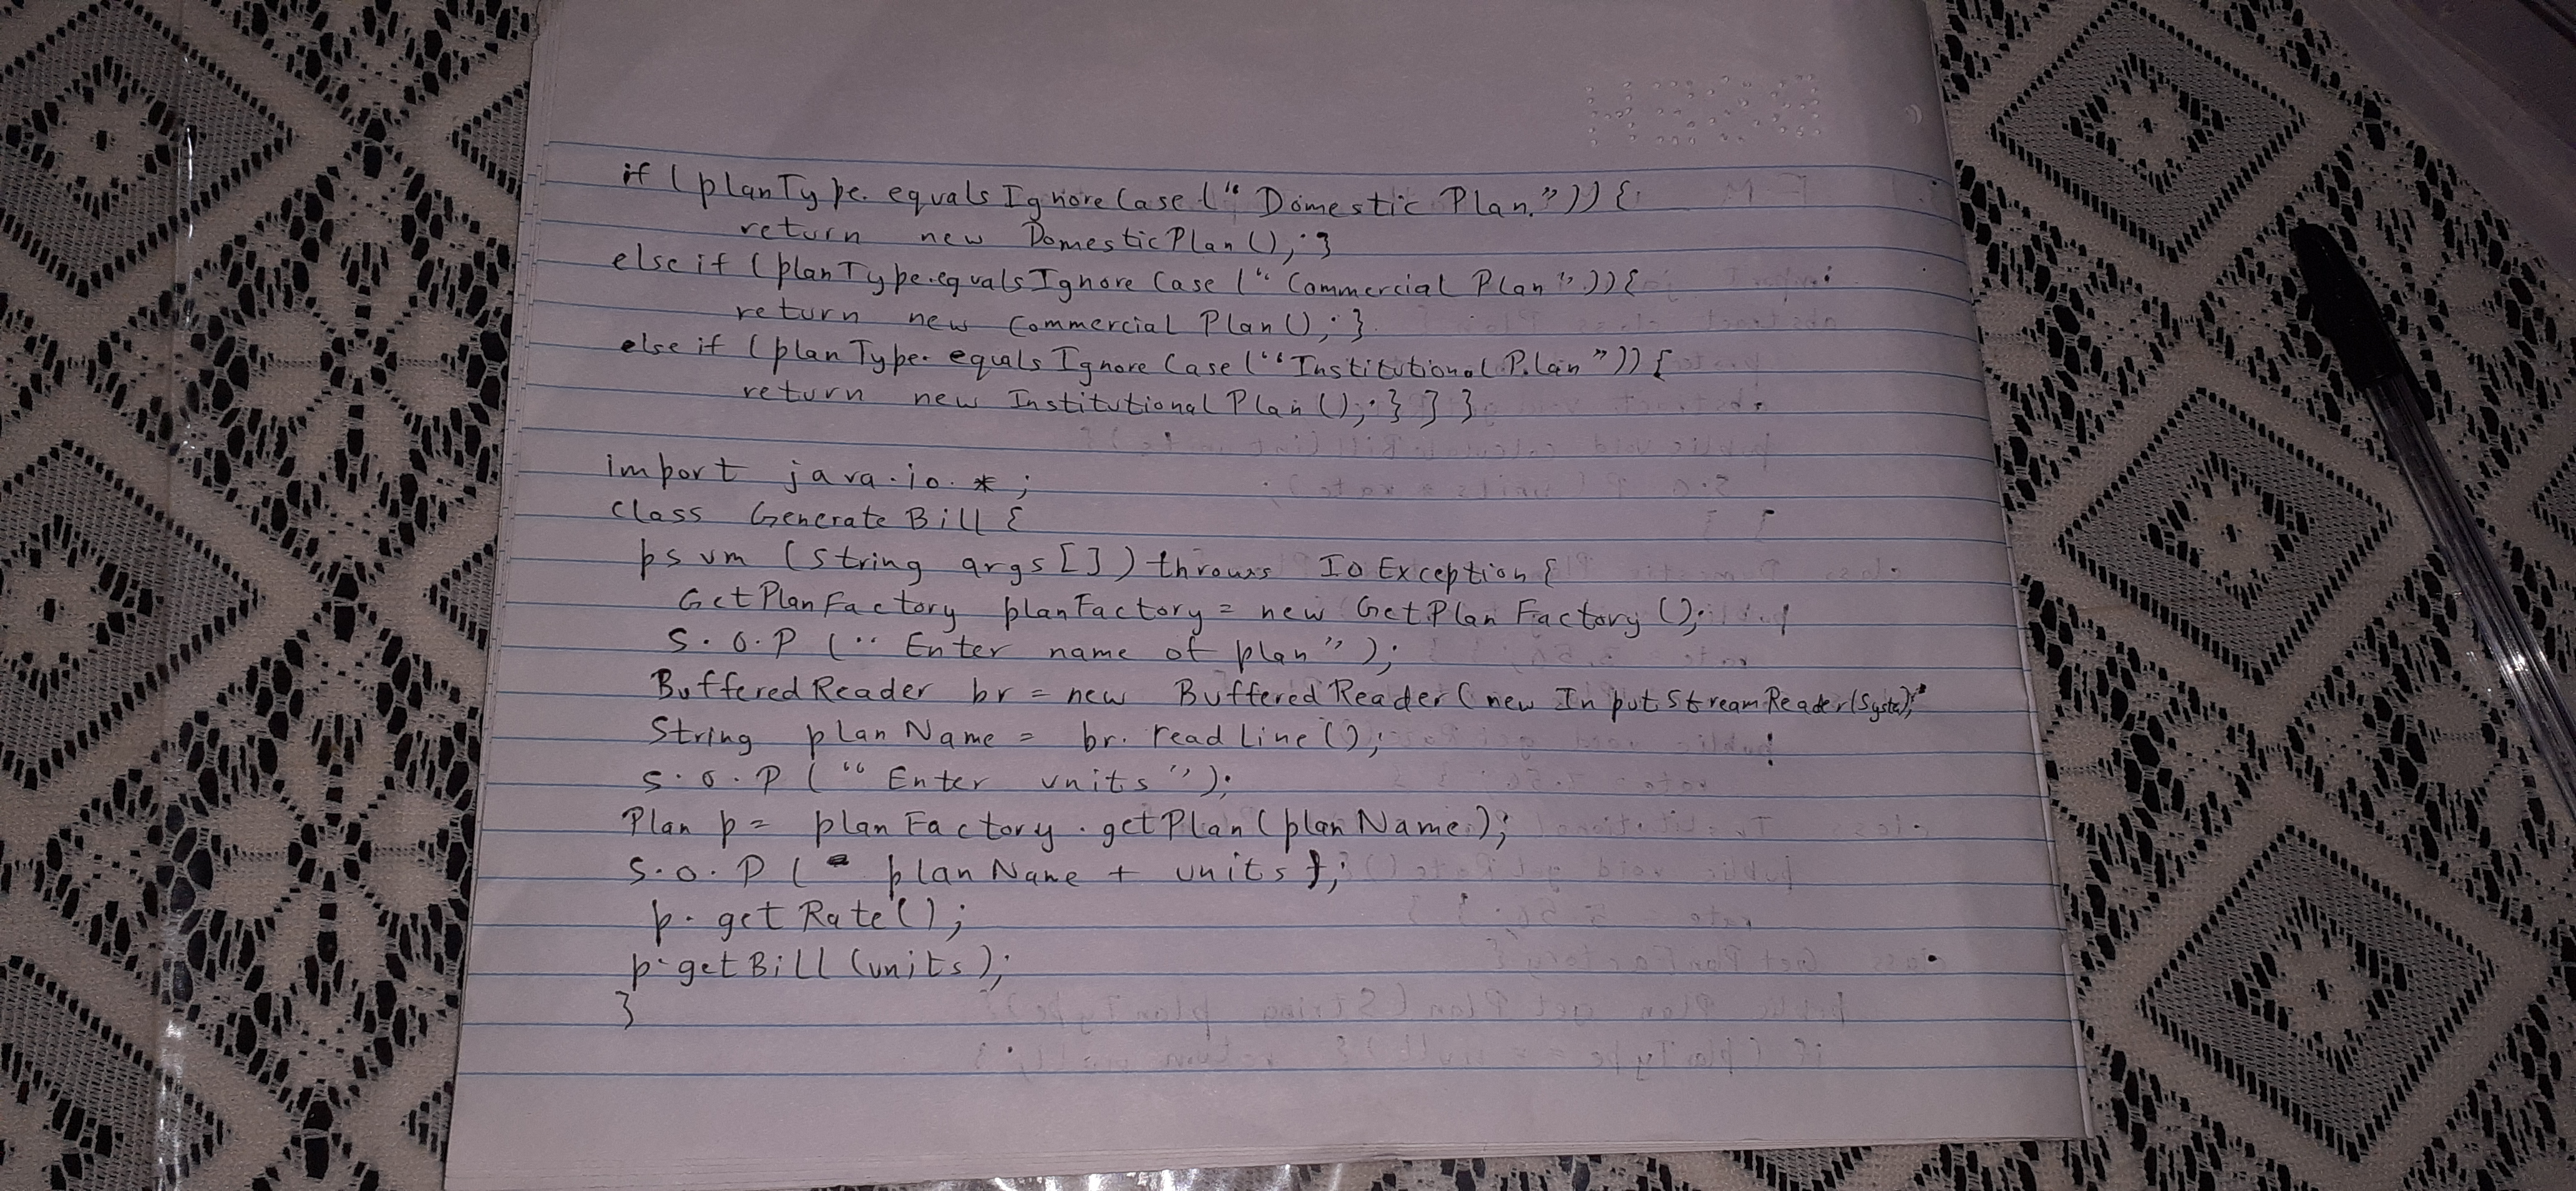 if (planType.equalsIgnoreCase(“Domestic Plan”)) {
return new DomesticPlan(); }
else if (planType.equalsIgnoreCase (“Commercial Plan”)) {
return new Commercial Plan(); }
else if (planType.equalsIgnoreCase(“Institutional Plan”)) {
return new Institutional Plan(); } } }
import java.io.*;
class Generate Bill {
psvm (String args[]) throws IOException {
GetPlanFactory planFactory = new GetPlan Factory();
S.O.P (“Enter name of plan”);
BufferedReader br = new BufferedReader(new InputStreamReader(System);
String planName = br.readLine();
S.O.P (“Enter units”);
Plan p = planFactory.getPlan(planName);
S.O.P ( planName + units);
p.getRate();
p.getBill(units);
}